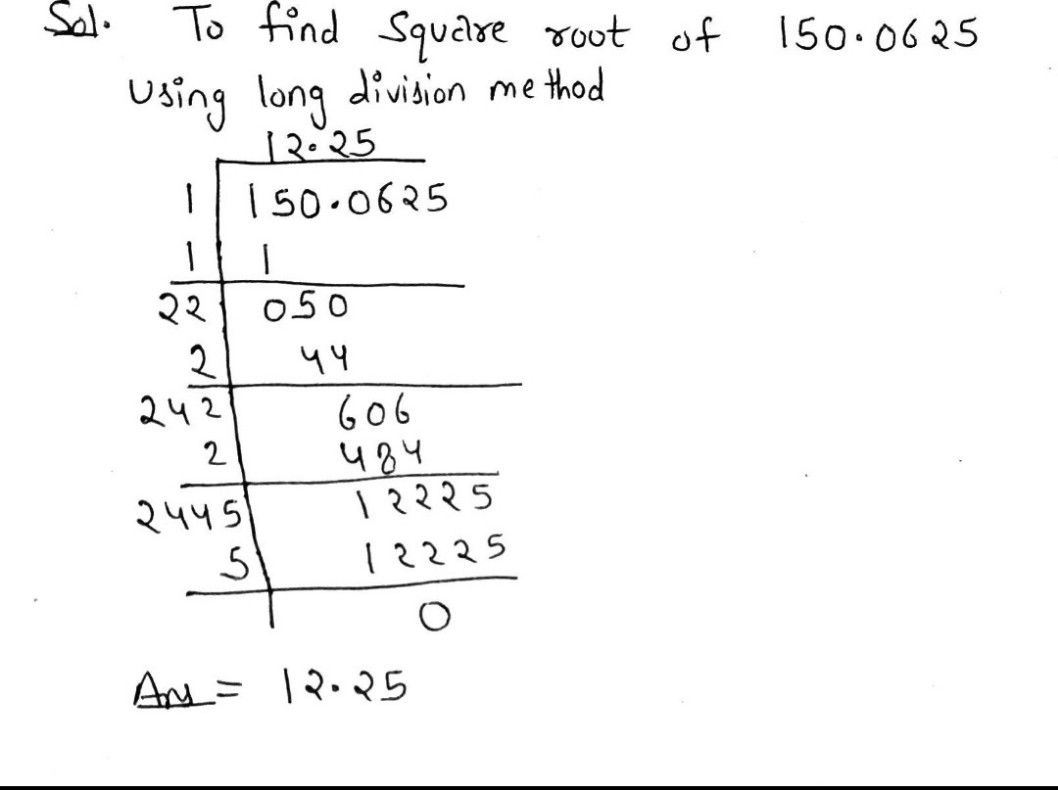 Sol. To find Square root of 150.0625
Using long division method
12.25
1 150.0625
1 1
22 050
2 44
242 606
2 484
2445 12225
5 12225
0
Ans = 12.25